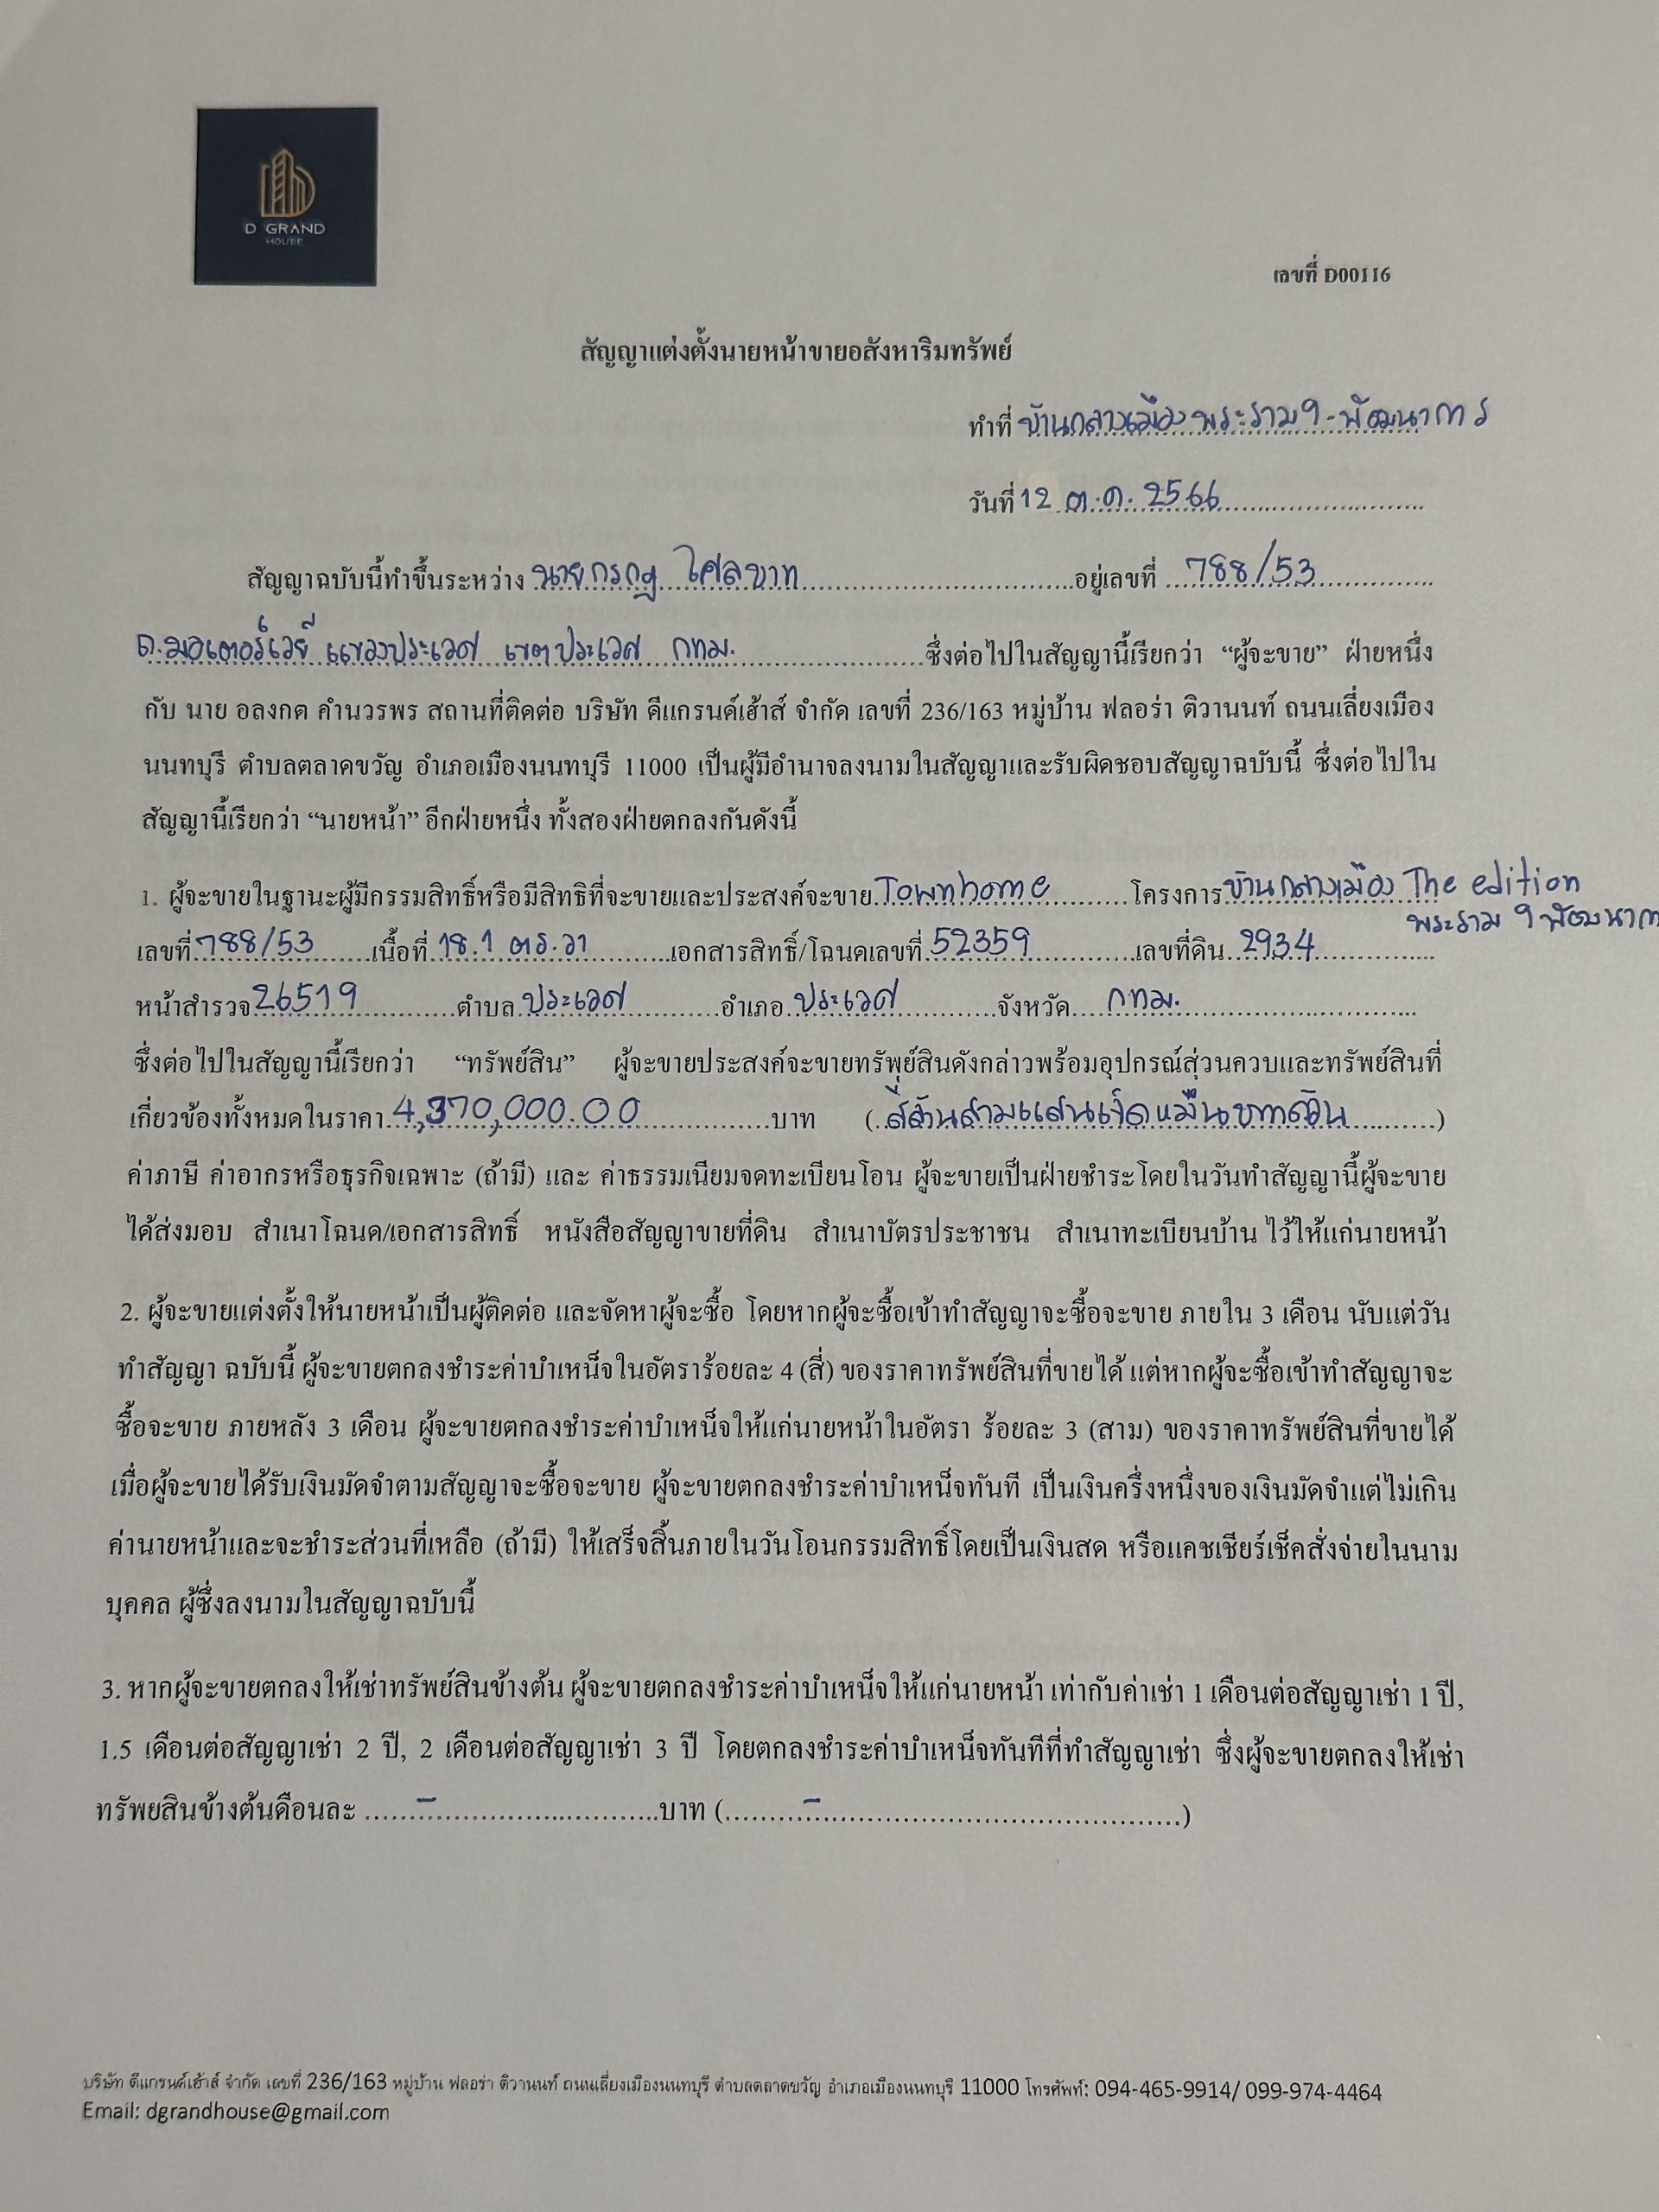 D GRAND
HOUSE
เลขที่ D00116
สัญญาแต่งตั้งนายหน้าขายอสังหาริมทรัพย์
ทำที่ บ้านกลางเมือง พระราม 9 - พัฒนาการ
วันที่ 12 ต.ค. 2566
สัญญาฉบับนี้ทำขึ้นระหว่าง นายกรกฎ ไศลบาท อยู่เลขที่ 788/53
ถ.มอเตอร์เวย์ แขวงประเวศ เขตประเวศ กทม. ซึ่งต่อไปในสัญญานี้เรียกว่า “ผู้จะขาย” ฝ่ายหนึ่ง
กับ นาย อลงกต คำนวรพร สถานที่ติดต่อ บริษัท ดีแกรนด์เฮ้าส์ จำกัด เลขที่ 236/163 หมู่บ้าน ฟลอร่า ติวานนท์ ถนนเลี่ยงเมือง
นนทบุรี ตำบลตลาดขวัญ อำเภอเมืองนนทบุรี 11000 เป็นผู้มีอำนาจลงนามในสัญญาและรับผิดชอบสัญญาฉบับนี้ ซึ่งต่อไปใน
สัญญานี้เรียกว่า “นายหน้า” อีกฝ่ายหนึ่ง ทั้งสองฝ่ายตกลงกันดังนี้
1. ผู้จะขายในฐานะผู้มีกรรมสิทธิ์หรือมีสิทธิที่จะขายและประสงค์จะขาย Townhome โครงการ บ้านกลางเมือง The edition
พระราม 9 พัฒนาก
เลขที่ 788/53 เนื้อที่ 18.1 ตร.วา เอกสารสิทธิ์/โฉนดเลขที่ 52359 เลขที่ดิน 2934
หน้าสำรวจ 26519 ตำบล ประเวศ อำเภอ ประเวศ จังหวัด กทม.
ซึ่งต่อไปในสัญญานี้เรียกว่า “ทรัพย์สิน” ผู้จะขายประสงค์จะขายทรัพย์สินดังกล่าวพร้อมอุปกรณ์สุ่วนควบและทรัพย์สินที่
เกี่ยวข้องทั้งหมดในราคา 4,370,000.00 บาท (สี่ล้านสามแสนเจ็ดหมื่นบาทถ้วน)
ค่าภาษี ค่าอากรหรือธุรกิจเฉพาะ (ถ้ามี) และ ค่าธรรมเนียมจดทะเบียนโอน ผู้จะขายเป็นฝ่ายชำระโดยในวันทำสัญญานี้ผู้จะขาย
ได้ส่งมอบ สำเนาโฉนด/เอกสารสิทธิ์ หนังสือสัญญาขายที่ดิน สำเนาบัตรประชาชน สำเนาทะเบียนบ้าน ไว้ให้แก่นายหน้า
2. ผู้จะขายแต่งตั้งให้นายหน้าเป็นผู้ติดต่อ และจัดหาผู้จะซื้อ โดยหากผู้จะซื้อเข้าทำสัญญาจะซื้อจะขาย ภายใน 3 เดือน นับแต่วัน
ทำสัญญา ฉบับนี้ ผู้จะขายตกลงชำระค่าบำเหน็จในอัตราร้อยละ 4 (สี่) ของราคาทรัพย์สินที่ขายได้ แต่หากผู้จะซื้อเข้าทำสัญญาจะ
ซื้อจะขาย ภายหลัง 3 เดือน ผู้จะขายตกลงชำระค่าบำเหน็จให้แก่นายหน้าในอัตรา ร้อยละ 3 (สาม) ของราคาทรัพย์สินที่ขายได้
เมื่อผู้จะขายได้รับเงินมัดจำตามสัญญาจะซื้อจะขาย ผู้จะขายตกลงชำระค่าบำเหน็จทันที เป็นเงินครึ่งหนึ่งของเงินมัดจำแต่ไม่เกิน
ค่านายหน้าและจะชำระส่วนที่เหลือ (ถ้ามี) ให้เสร็จสิ้นภายในวันโอนกรรมสิทธิ์โดยเป็นเงินสด หรือแคชเชียร์เช็คสั่งจ่ายในนาม
บุคคล ผู้ซึ่งลงนามในสัญญาฉบับนี้
3. หากผู้จะขายตกลงให้เช่าทรัพย์สินข้างต้น ผู้จะขายตกลงชำระค่าบำเหน็จให้แก่นายหน้า เท่ากับค่าเช่า 1 เดือนต่อสัญญาเช่า 1 ปี,
1.5 เดือนต่อสัญญาเช่า 2 ปี, 2 เดือนต่อสัญญาเช่า 3 ปี โดยตกลงชำระค่าบำเหน็จทันทีที่ทำสัญญาเช่า ซึ่งผู้จะขายตกลงให้เช่า
ทรัพยสินข้างต้นดือนละ ......-......บาท (......-......)
บริษัท ดีแกรนด์เฮ้าส์ จำกัด เลขที่ 236/163 หมู่บ้าน ฟลอร่า ติวานนท์ ถนนเลี่ยงเมืองนนทบุรี ตำบลตลาดขวัญ อำเภอเมืองนนทบุรี 11000 โทรศัพท์: 094-465-9914/ 099-974-4464
Email: dgrandhouse@gmail.com